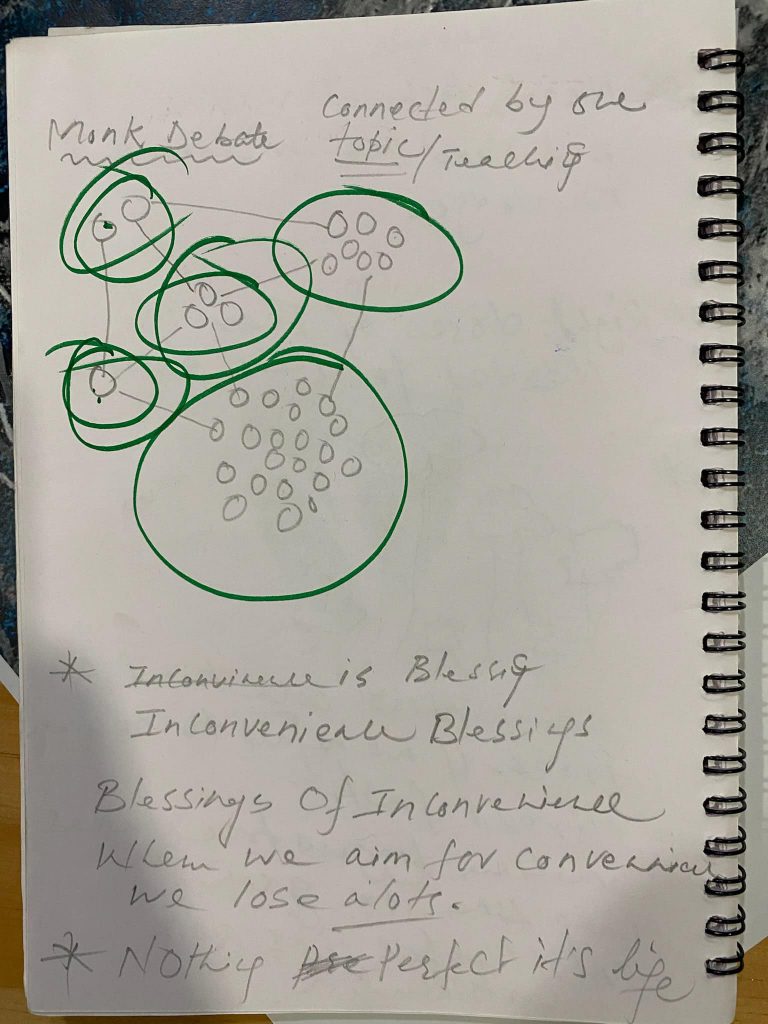 Monk Debate
Connected by one
topic/Teaching
* Inconvinence is Blessig
Inconvenience Blessings
Blessings Of Inconvenience
When we aim for convenience
we lose alots.
* Nothing Perfect it's life